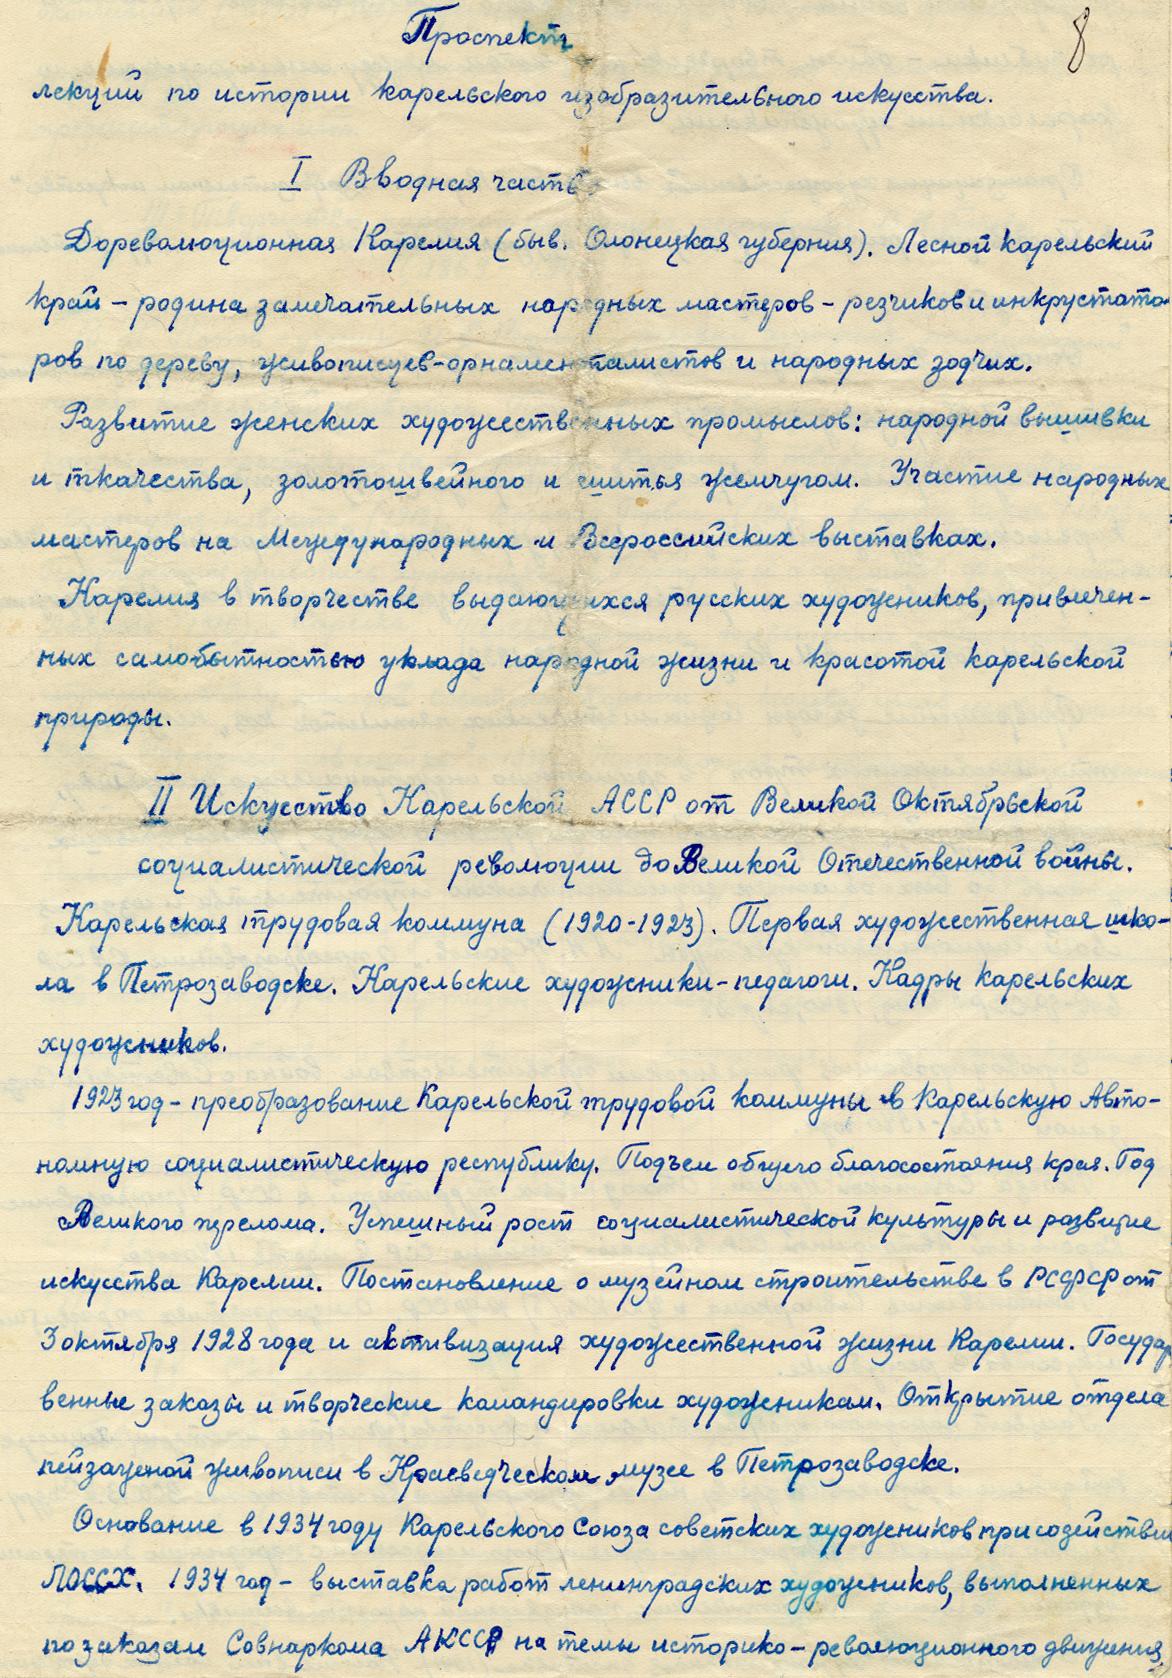 8
Проспект
лекций по истории карельского изобразительного искусства.
I Вводная часть
Дореволюционная Карелия (быв. Олонецкая губерния). Лесной карельский
край – родина замечательных народных мастеров – резчиков и инкрустато-
ров по дереву, живописцев-орнаменталистов и народных зодчих.
Развитие женских художественных промыслов: народной вышивки
и ткачества, золотошвейного и шитья жемчугом. Участие народных
мастеров на Международных и Всероссийских выставках.
Карелия в творчестве выдающихся русских художников, привлечен-
ных самобытностью уклада народной жизни и красотой карельской
природы.
II Искусство Карельской АССР от Великой Октябрьской
социалистической революции до Великой Отечественной войны.
Карельская трудовая коммуна (1920-1923). Первая художественная шко-
ла в Петрозаводске. Карельские художники-педагоги. Кадры карельских
художников.
1923 год – преобразование Карельской трудовой коммуны в Карельскую Авто-
номную социалистическую республику. Подъем общего благосостояния края. Год
Великого перелома. Успешный рост социалистической культуры и развитие
искусства Карелии. Постановление о музейном строительстве в РСФСР от
3 октября 1928 года и активизация художественной жизни Карелии. Государ
венные заказы и творческие командировки художникам. Открытие отдела
пейзажной живописи в Краеведческом музее в Петрозаводске.
Основание в 1934 году Карельского Союза советских художников при содействии
ЛОССХ. 1934 год – выставка работ ленинградских художников, выполненных
по заказам Совнаркома АКССР на темы историко-революционного движения,